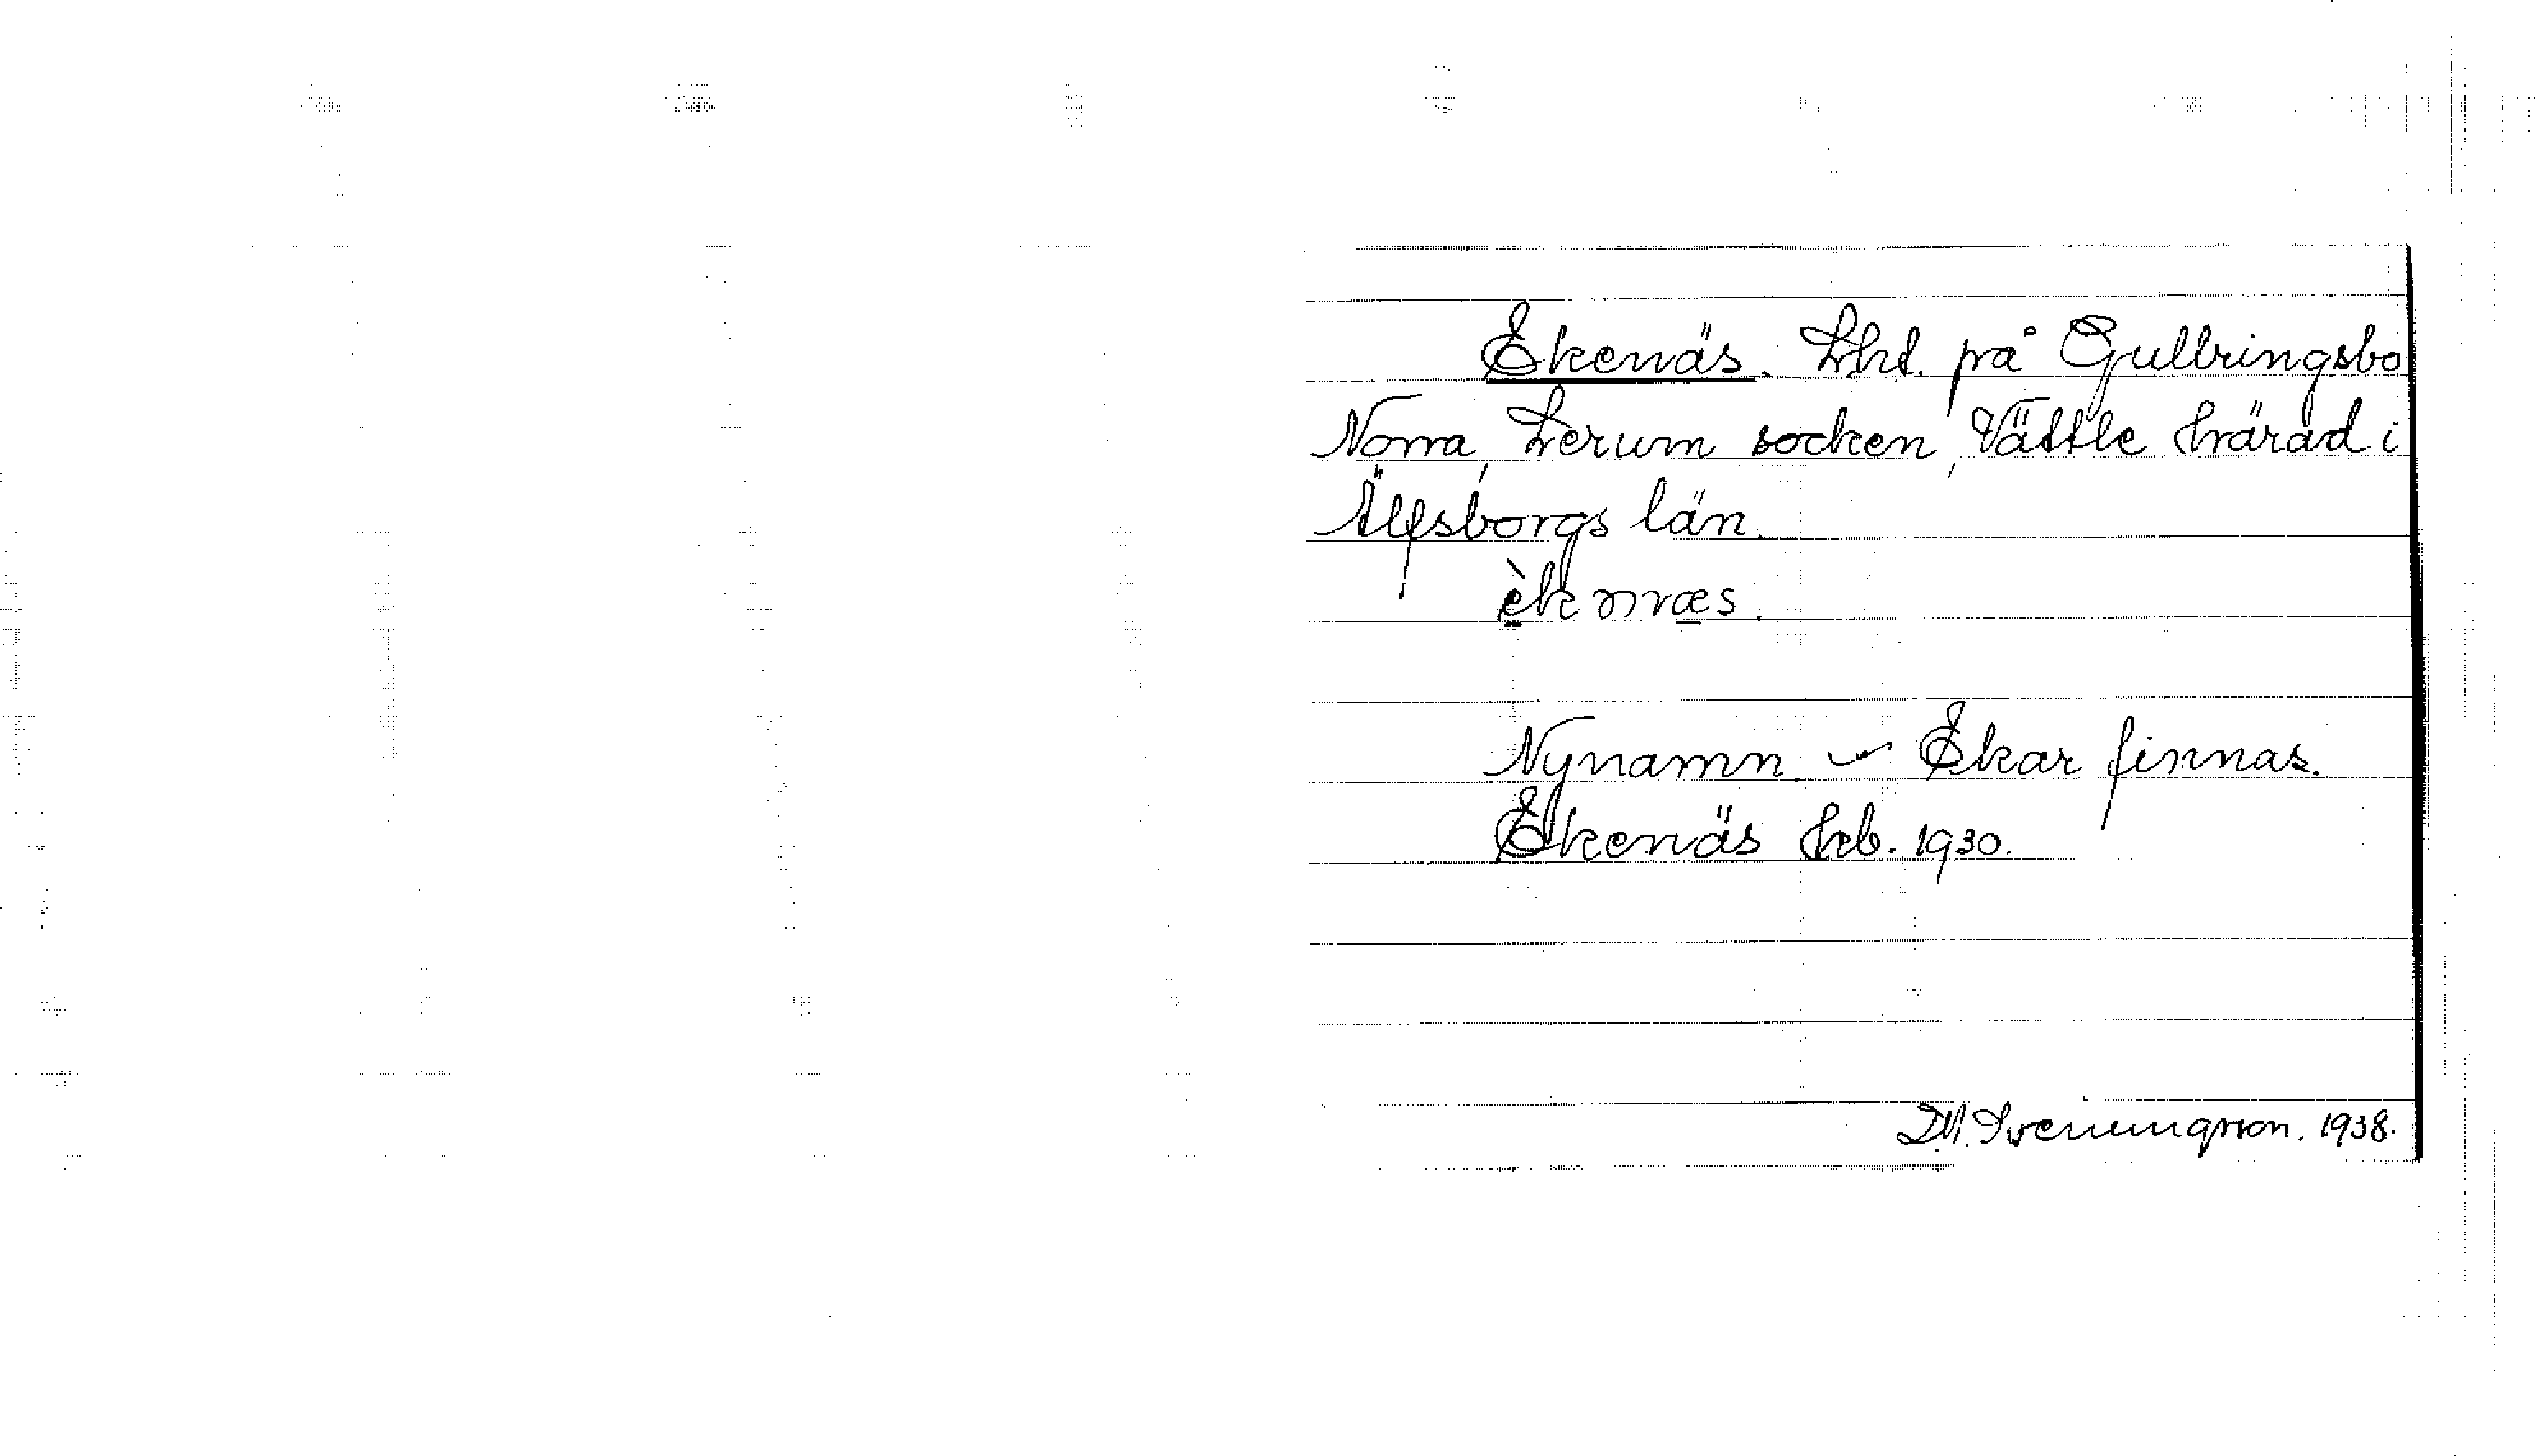 Ekenäs. Lht. på Gullringsbo
Norra, Lerum socken, Vättle härad i
Älfsborgs län.
èknæs.
Nynamn. – Ekar finnas.
Ekenäs hrb. 1930.
1938.